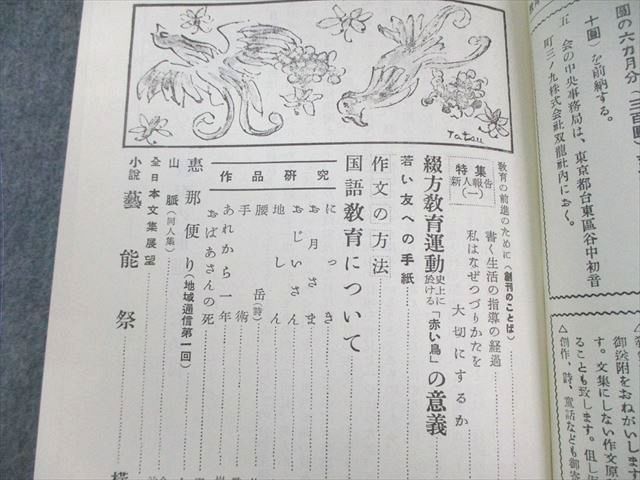 圓の六カ月分(二百四
十圓)を前納する。
五 会の中央事務局は、東京都台東區谷中初音
町三ノ九株式会社双龍社内におく。
御送附をおねがいします
す。文集にしない作文原
ることも致します。但し
△創作、詩、童話なども御寄
Tatsu
教育の前進のために(創刊のことば)
特集
新人報告(一)
書く生活の指導の経過
私はなぜつづりかたを
大切にするか
綴方教育運動史上に於ける「赤い鳥」の意義
若い友への手紙
作文の方法
国語教育について
作品研究
にっき
お月さま
おじいさん
地しん
腰岳(詩)
手術
あれから一年
おばあさんの死
惠那便り(地域通信第一回)
山脈(同人集)
全日本文集展望
小説 藝能祭